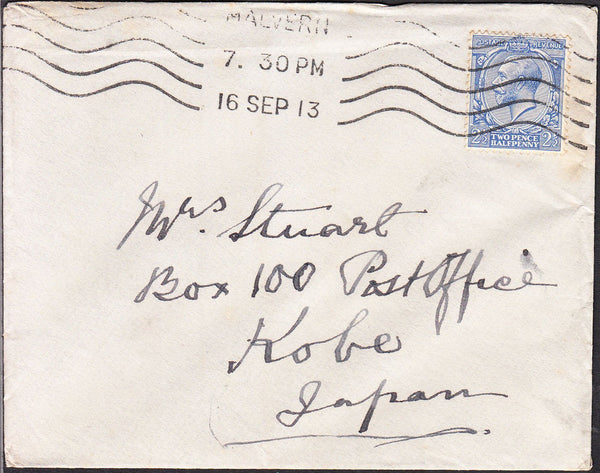 MALVERN
7. 30 PM
16 SEP 13
POSTAGE REVENUE
2½ TWO PENCE HALFPENNY 2½
Mrs Stuart
Box 100 Post Office
Kobe
Japan